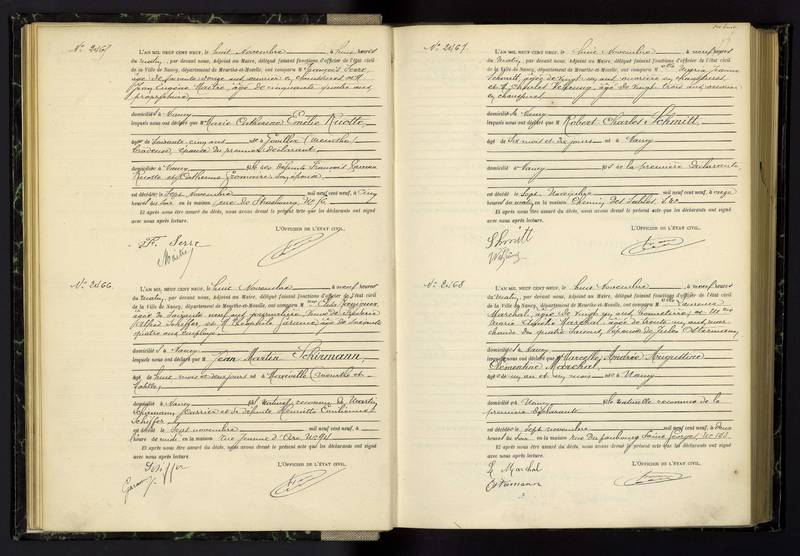 No. 2465
L'AN MIL NEUF CENT NEUF, le huit Novembre, à huit heures
du Matin, par devant nous, Adjoint au Maire, délégué faisant fonctions d'officier de l'état civil
de la Ville de Nancy, département de Meurthe-et-Moselle, ont comparu M François Serre,
âgé de soixante
Jean Eugène Maitre, âgé de cinquante quatre ans
propriétaire
domiciliés à Nancy
lesquels nous ont déclaré que Marie Catherine Emélie Ricotte,
âgée de soixante cinq ans née à (Meurthe)
épouse du premier déclarant
domiciliée à Nancy fille des défunts François
Ricotte et Catherine son épouse
est décédée le sept Novembre mil neuf cent neuf, à cinq
heures du soir en la maison rue de Strasbourg, No
Et après nous être assuré du décès, nous avons dressé le présent acte que les déclarants ont signé
avec nous après lecture.
L'OFFICIER DE L'ÉTAT CIVIL.
F. Serre
Maitre
No. 2466
L'AN MIL NEUF CENT NEUF, le huit Novembre, à neuf heures
du Matin, par devant nous, Adjoint au Maire, délégué faisant fonctions d'officier de l'état civil
de la Ville de Nancy, département de Meurthe-et-Moselle, ont comparu M
âgée de soixante neuf ans
Alfred Schiffer et M Théophile âgé de soixante
quatre ans employé
domiciliés à Nancy
lesquels nous ont déclaré que M Jean Martin Schirmann,
âgé de huit mois et deux jours né à Maxéville (Meurthe et
Moselle)
domicilié à Nancy fils naturel reconnu de Martin
Schirmann carrier et de défunte Henriette
Schiffer
est décédé le sept novembre mil neuf cent neuf, à
heure de midi en la maison rue Jeanne d'Arc No
Et après nous être assuré du décès, nous avons dressé le présent acte que les déclarants ont signé
avec nous après lecture.
L'OFFICIER DE L'ÉTAT CIVIL.
No. 2467
L'AN MIL NEUF CENT NEUF, le huit Novembre, à neuf heures
du Matin, par devant nous, Adjoint au Maire, délégué faisant fonctions d'officier de l'état civil
de la Ville de Nancy, département de Meurthe-et-Moselle, ont comparu M Maria Jeanne
Schmitt, âgée de vingt un ans ouvrière en chaussures
et M Charles âgé de vingt trois ans ouvrier
en chaussures
domiciliés à Nancy
lesquels nous ont déclaré que M Robert Charles Schmitt,
âgé de six mois et dix jours né à Nancy
domicilié à Nancy fils de la première déclarante
est décédé le sept Novembre mil neuf cent neuf, à onze
heures du matin en la maison Chemin des Sables,
Et après nous être assuré du décès, nous avons dressé le présent acte que les déclarants ont signé
avec nous après lecture.
L'OFFICIER DE L'ÉTAT CIVIL.
Schmitt
No. 2468
L'AN MIL NEUF CENT NEUF, le huit Novembre, à neuf heures
du Matin, par devant nous, Adjoint au Maire, délégué faisant fonctions d'officier de l'état civil
de la Ville de Nancy, département de Meurthe-et-Moselle, ont comparu M Laurence
Marchal, âgée de vingt un ans et M
Marie Marchal âgée de trente un ans
épouse de Jules Ostermann,
domiciliés à Nancy
lesquels nous ont déclaré que Marcelle Andrée Augustine
Clémentine Marchal,
âgée de un an et un mois née à Nancy
domiciliée à Nancy fille naturelle reconnue de la
première déclarante
est décédée le sept novembre mil neuf cent neuf, à deux
heures du soir en la maison rue du faubourg Saint Georges, No
Et après nous être assuré du décès, nous avons dressé le présent acte que les déclarants ont signé
avec nous après lecture.
L'OFFICIER DE L'ÉTAT CIVIL.
Marchal
Ostermann